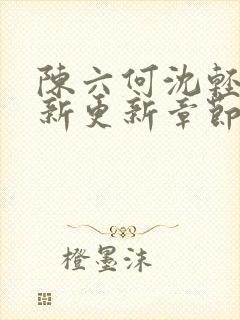 陳六何沈輕
新更新章節
橙墨沫